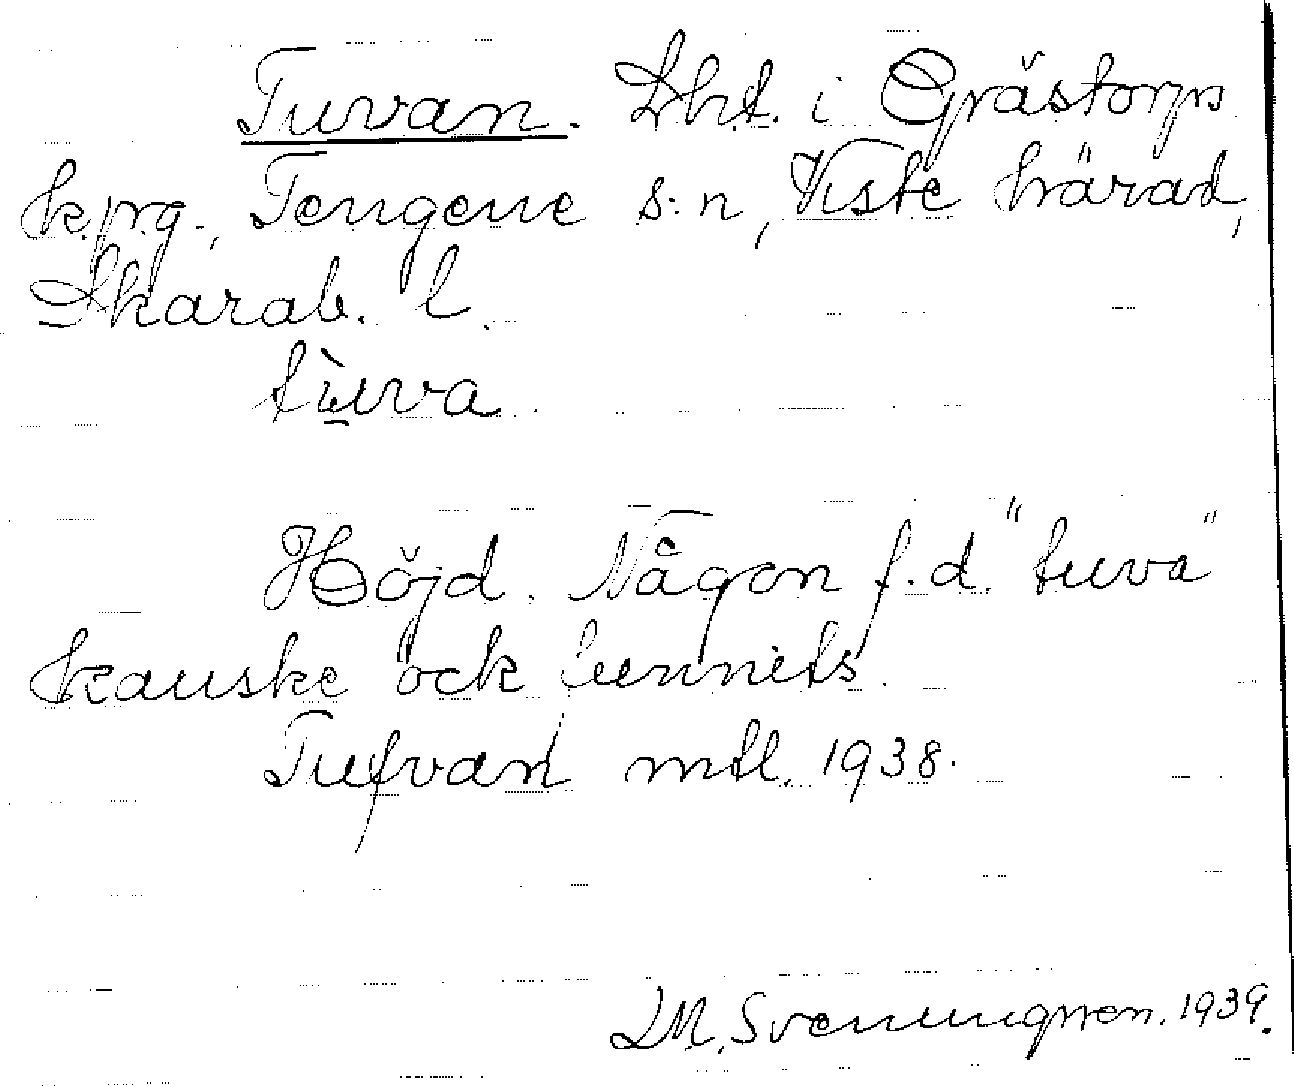 Tuvan. Lht. i Grästorps
k.prg., Tengene s:n, Viste härad,
Skarab. l.
tùva
Höjd. Någon f.d. "tuva"
kanske ock funnits.
Tufvan mtl. 1938.
LM. Svenungsson. 1939.